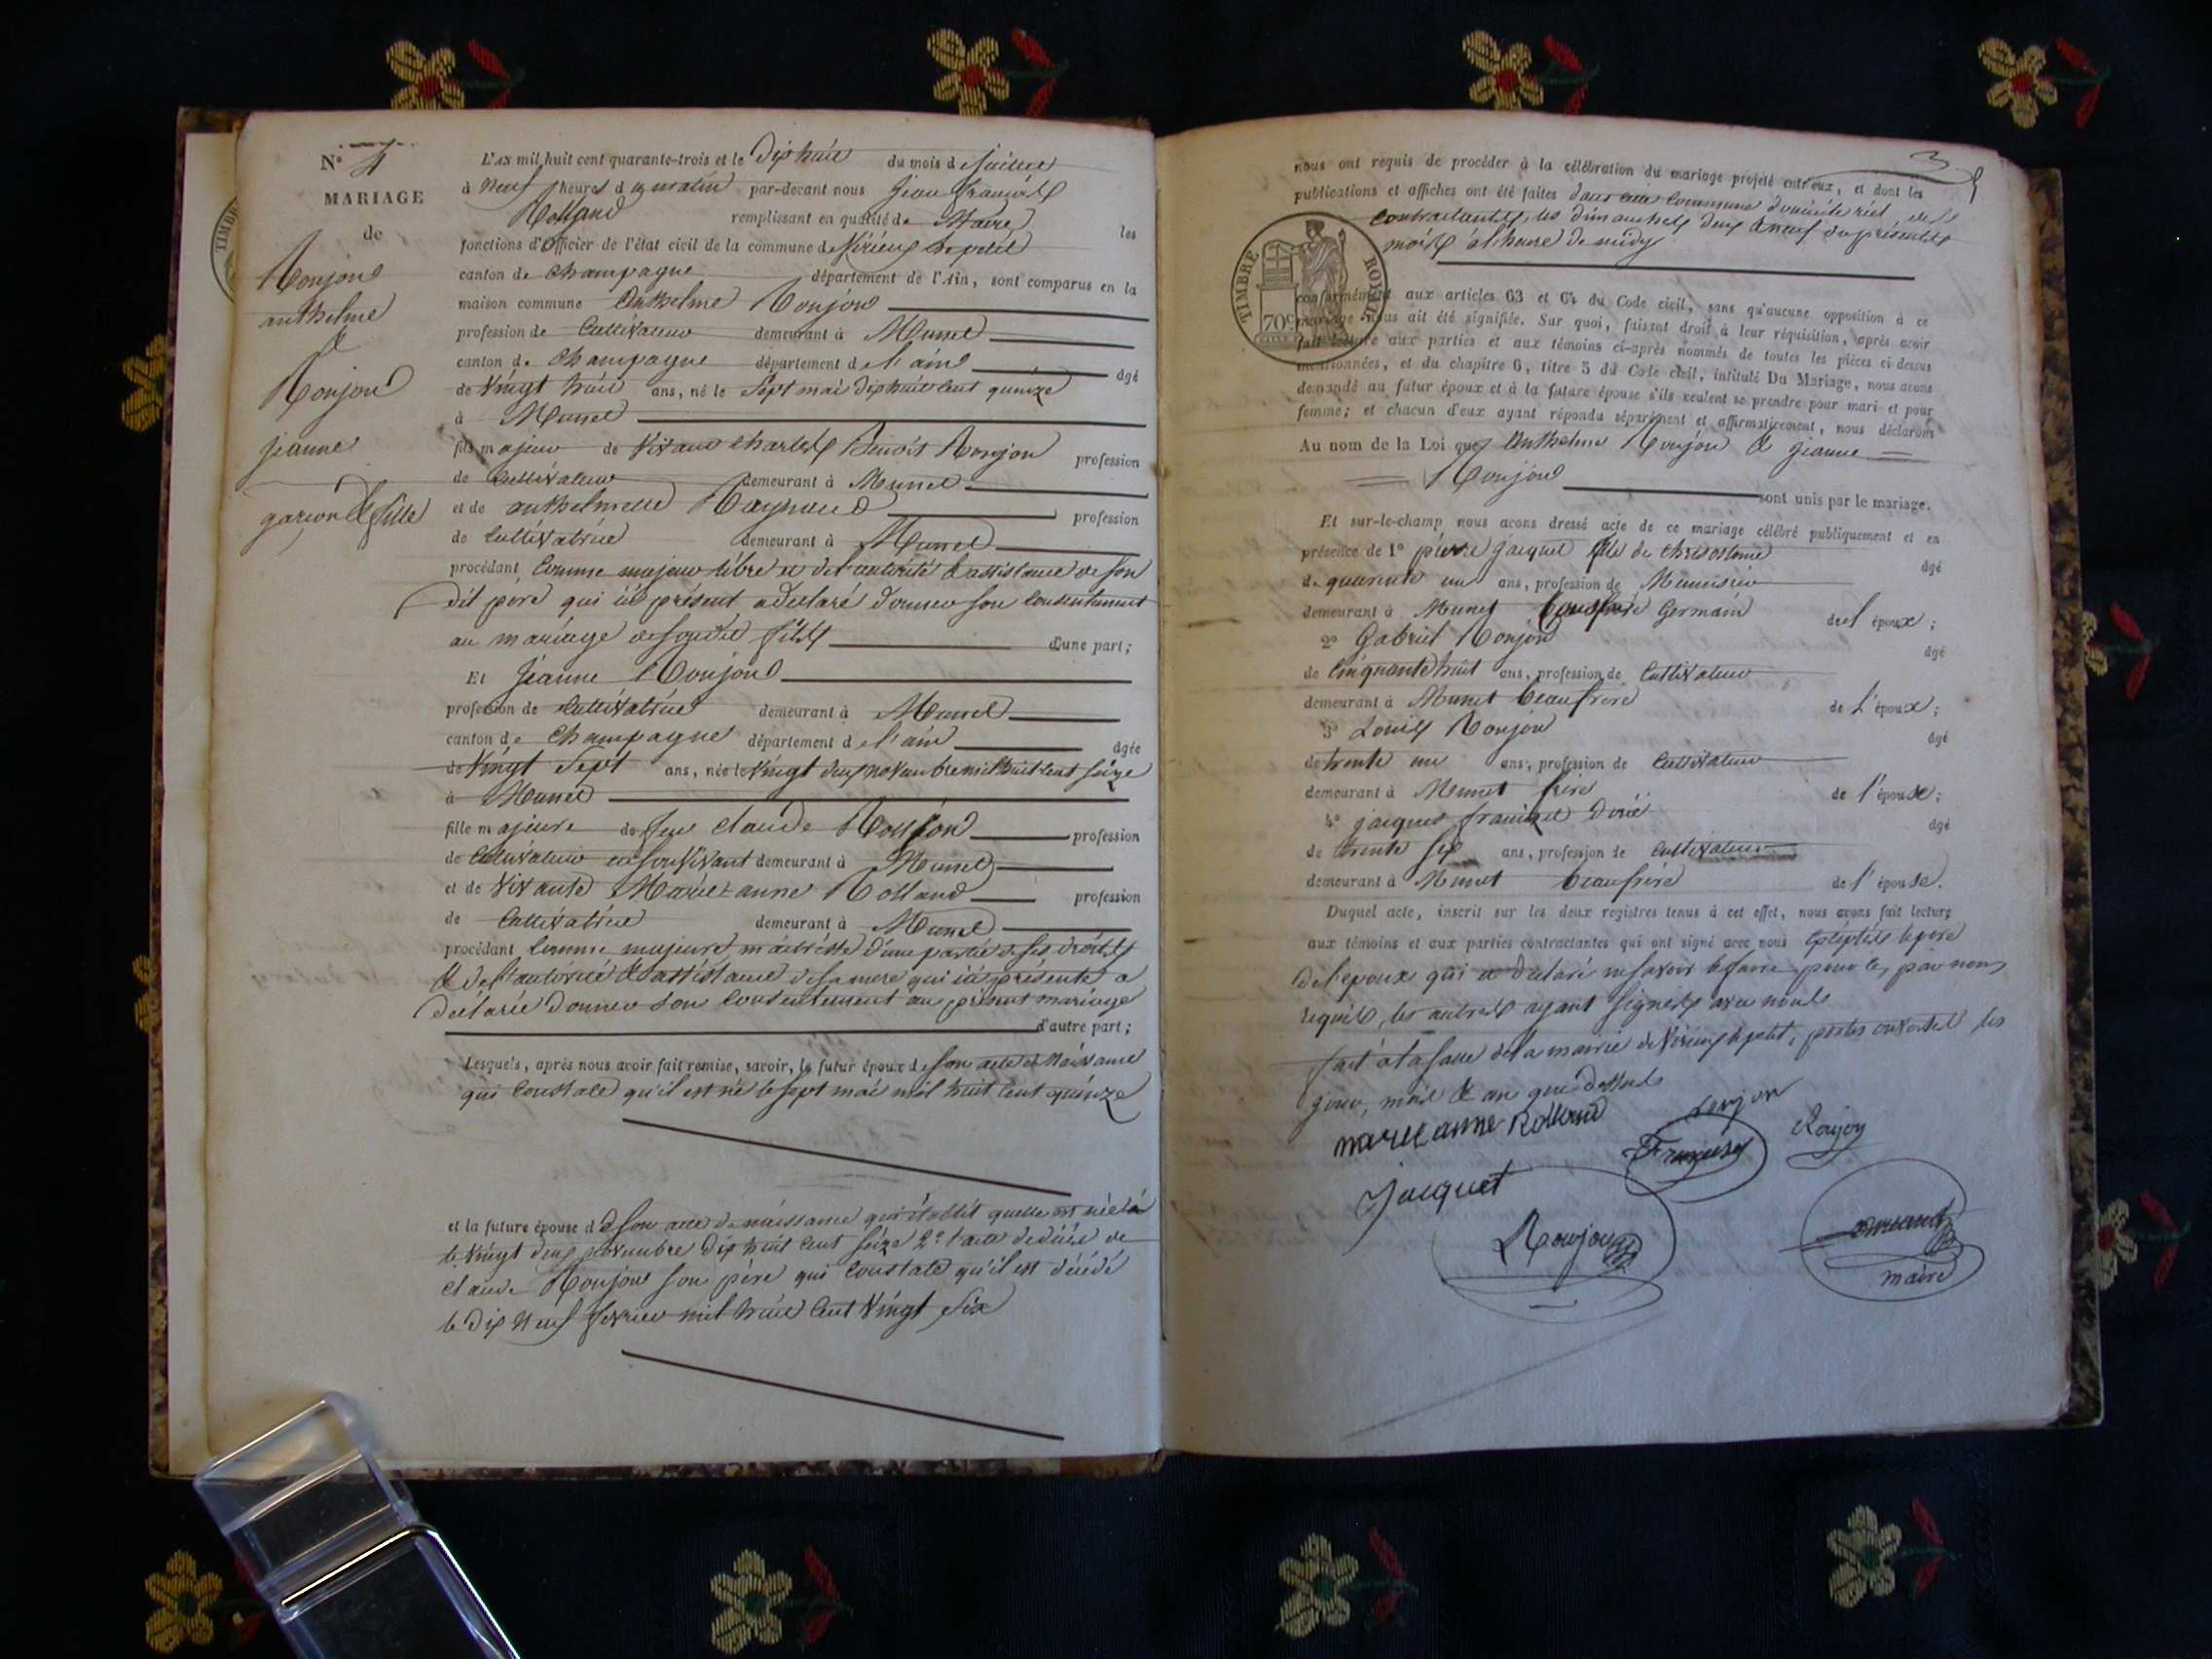 N° 4
MARIAGE
de
Roujon
anthelme
&
Roujon
jeanne
garcon & fille
L'AN mil huit cent quarante-trois et le Dix huit du mois de juillet
à neuf heures du matin par-devant nous Jean François
Rolland remplissant en qualité de Maire les
fonctions d'officier de l'état civil de la commune de Virieux le petit
canton de Champagne département de l'Ain, sont comparus en la
maison commune Anthelme Roujon
profession de Cultivateur demeurant à Munet
canton de Champagne département de l'ain âgé
de Vingt huit ans, né le Sept mai dix huit cent quinze
à Munet
fils majeur de Vivant Charles Benoit Roujon profession
de Cultivateur demeurant à Munet
et de anthelmette Raynaud profession
de Cultivatrice demeurant à Munet
procédant Comme majeur libre et de l'autorité & assistance de son
dit père qui ici présent a déclaré donner son Consentement
au mariage de son dit fils d'une part;
Et Jeanne Roujon
profession de Cultivatrice demeurant à Munet
canton de Champagne département de l'ain âgée
de Vingt Sept ans, née le Vingt deux novembre mil huit cent seize
à Munet
fille majeure de feu Claude Roujon profession
de Cultivateur en son vivant demeurant à Munet
et de Vivante Marie-anne Rolland profession
de Cultivatrice demeurant à Munet
procédant Comme majeure maitresse d'une partie de ses droits
& de l'autorité & assistance de sa mere qui ici présente a
déclaré donner son Consentement au présent mariage
d'autre part;
Lesquels, après nous avoir fait remise, savoir, le futur époux de son acte de Naissance
qui Constate qu'il est né le sept mai mil huit cent quinze
et la future épouse de son acte de naissance qui établit quelle est née le
le Vingt deux novembre dix huit cent seize 2° l'acte de décès de
Claude Roujon son père qui Constate qu'il est décédé
le dix Neuf fevrier mil huit Cent Vingt six
3
nous ont requis de procéder à la célébration du mariage projeté entr'eux, et dont les
publications et affiches ont été faites dans cette Commune domicile réel des
contractants, les dimanches deux & neuf du présent
mois à l'heure de midy
TIMBRE ROYAL
70c
conformément aux articles 63 et 64 du Code civil, sans qu'aucune opposition à ce
mariage nous ait été signifiée. Sur quoi, faisant droit à leur réquisition, après avoir
fait lecture aux parties et aux témoins ci-après nommés de toutes les pièces ci-dessus
mentionnées, et du chapitre 6, titre 5 du Code civil, intitulé Du Mariage, nous avons
demandé au futur époux et à la future épouse s'ils veulent se prendre pour mari et pour
femme; et chacun d'eux ayant répondu séparément et affirmativement, nous déclarons
Au nom de la Loi que Anthelme Roujon & jeanne
Roujon sont unis par le mariage.
Et sur-le-champ nous avons dressé acte de ce mariage célébré publiquement et en
présence de 1° pierre jacquet fils de chrisostome âgé
de quarente un ans, profession de Menuisier
demeurant à Munet Germain de l'époux;
2° Gabriel Roujon âgé
de Cinquante huit ans, profession de Cultivateur
demeurant à Munet beaufrère de L'époux;
3° Louis Roujon âgé
de trente un ans, profession de Cultivateur
demeurant à Munet frère de l'épouse;
4° jacques françois âgé
de trente six ans, profession de Cultivateur
demeurant à Munet beaufrère de l'épouse.
Duquel acte, inscrit sur les deux registres tenus à cet effet, nous avons fait lecture
aux témoins et aux parties contractantes qui ont signé avec nous Exeptés le père
de l'epoux qui a déclaré ne savoir le faire pour ce par nous
requis, les autres ayant signés avec nous
fait à la salle de la mairie de Virieux le petit, portes ouvertes les
jour, mois & an que dessus
marie anne Rolland
Roujon
Roujon
Jacquet
Roujon
maire